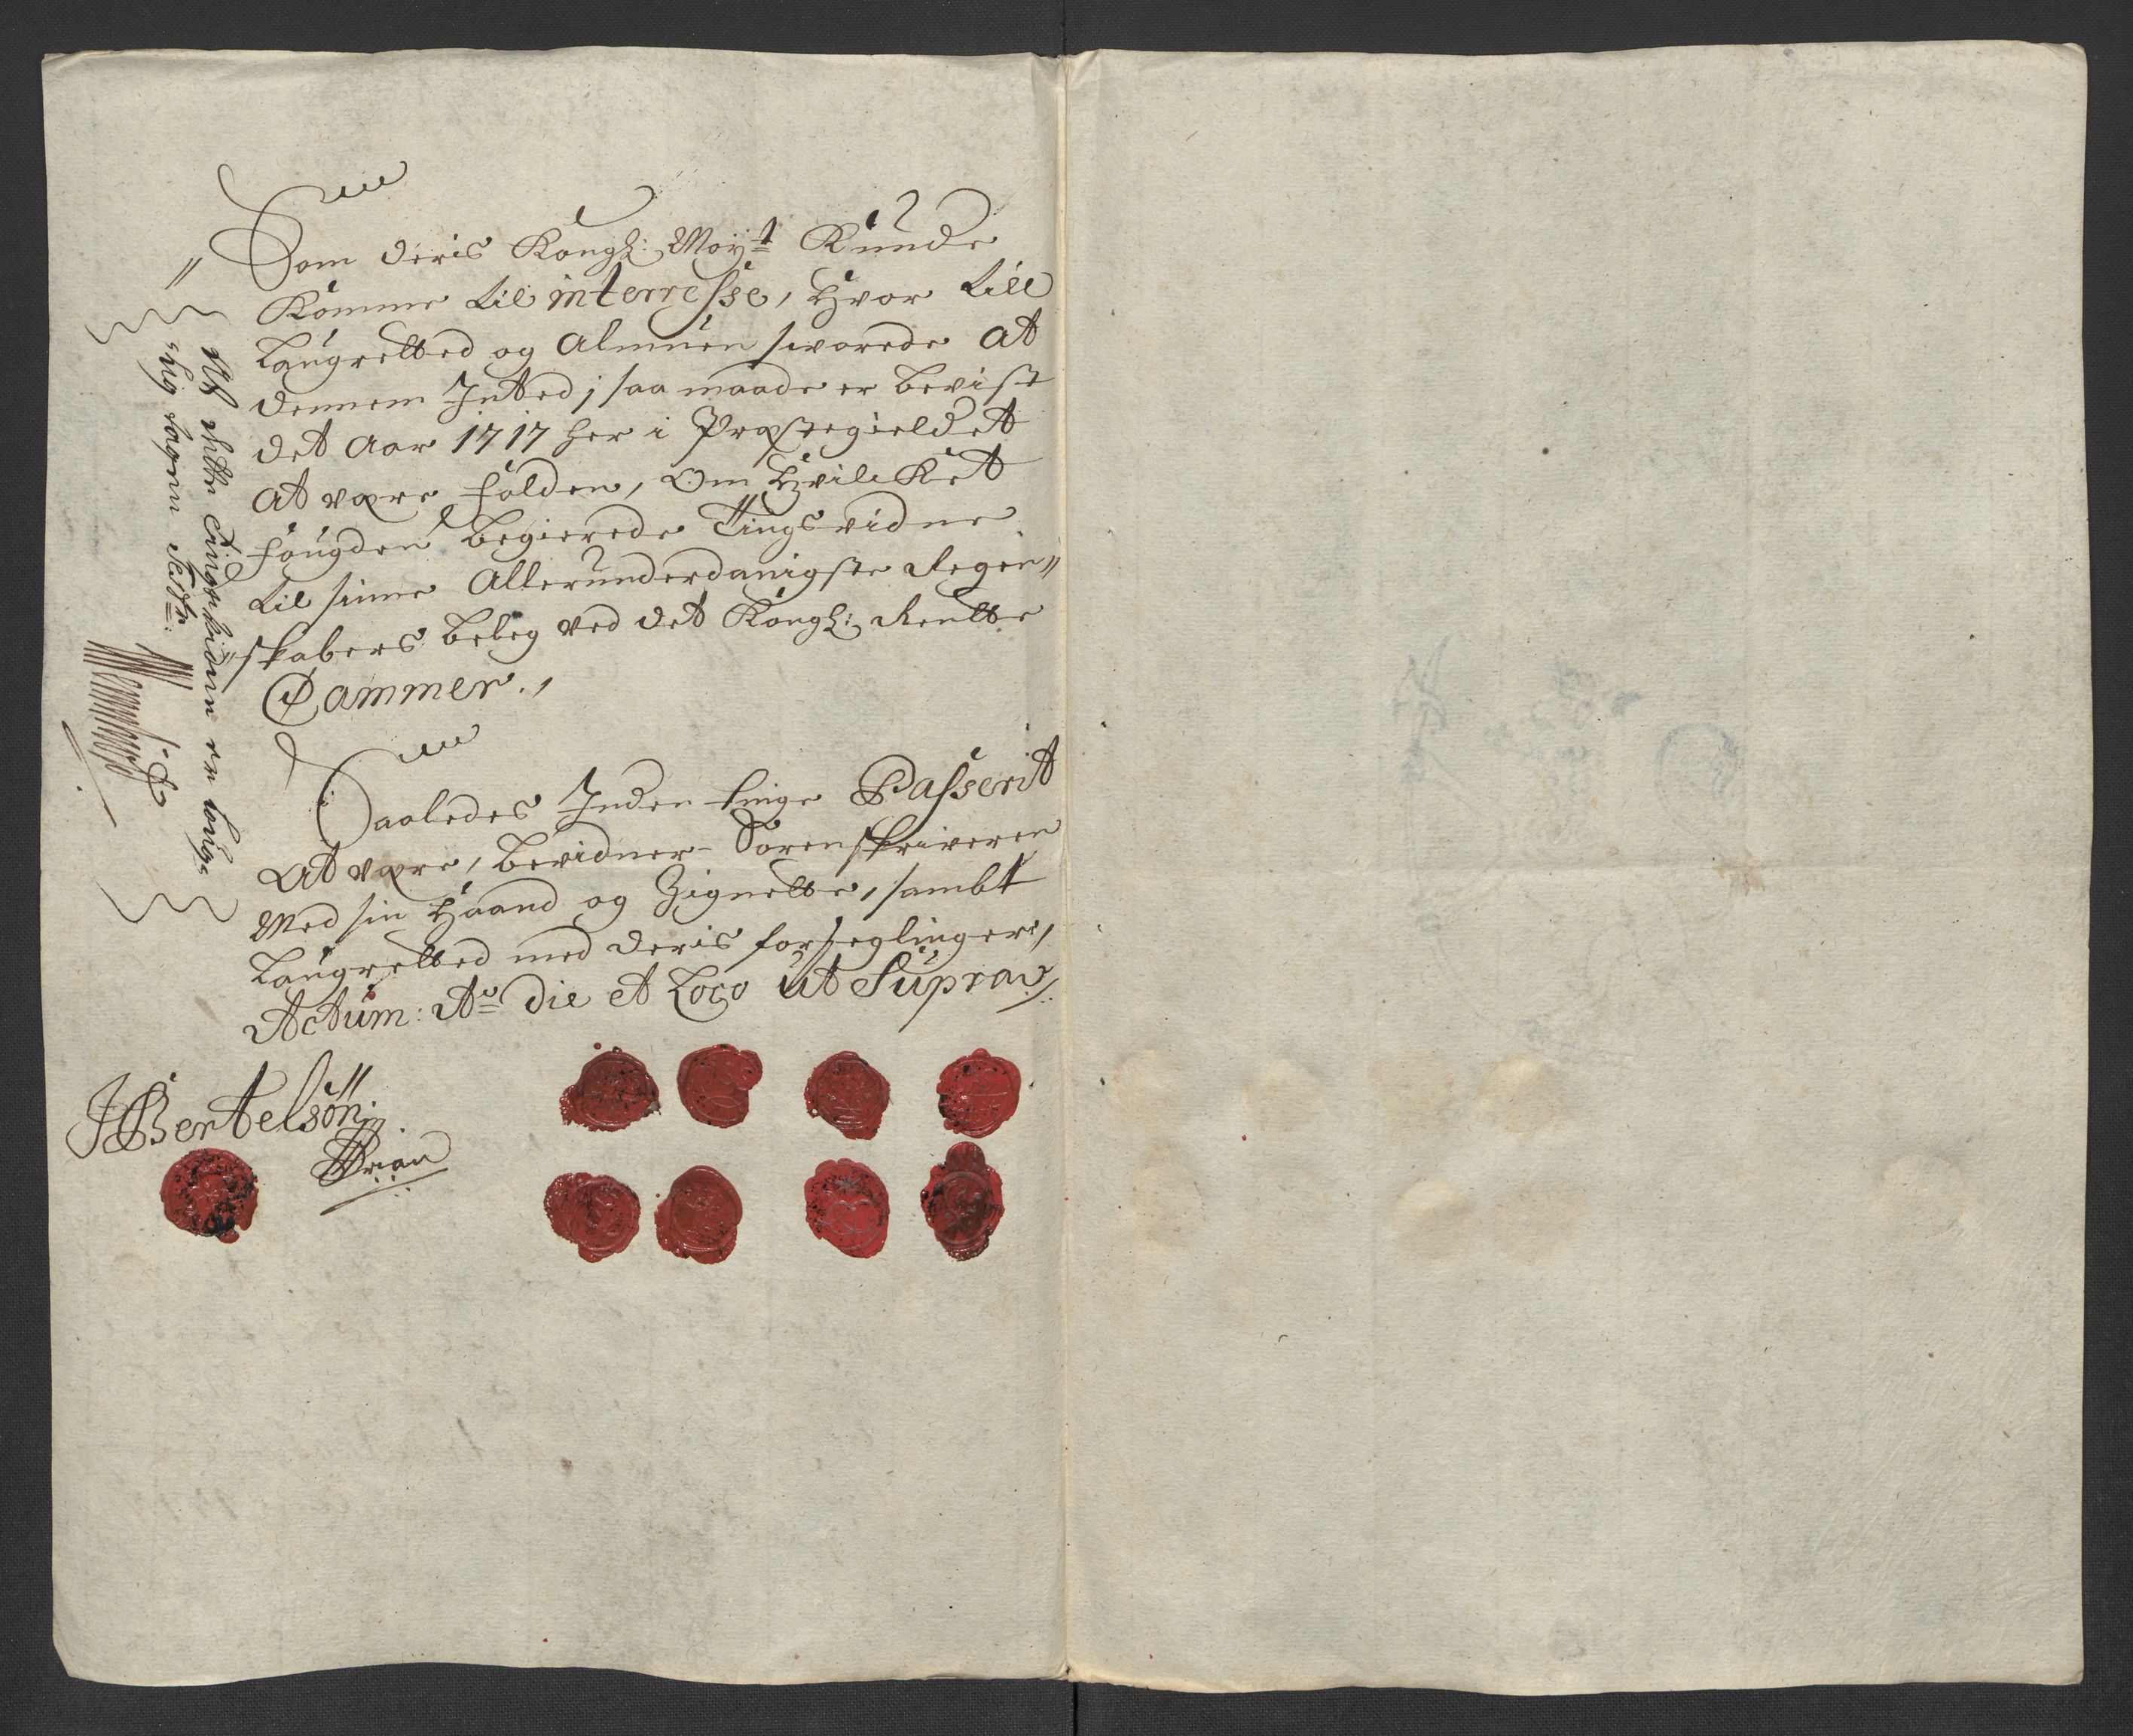 Som deris Kongl: May:t Kunde
Komme til interresse, Hvor till
Laugretted og Almuen svarede at
dennem Inted j saa maade er bevist
det Aar 1717 her i Præstegieldet
at være falden, Om Hvilcket
fougden begierede Tings vidne
til sinne Allerunderdanigste Regen„
skabers beleg ved det Kongl: Rentte
Cammer.,
Saaledes Inden tinge Passerit
At være, bevidner Sorenskriveren
Med sin Haand og Zignette, sambt
Laugretted med deris forseglinger,
Actum: A:o Die et Loco ut Supra
JBertelsön
At dette Tings vidne er
rigtig Test: